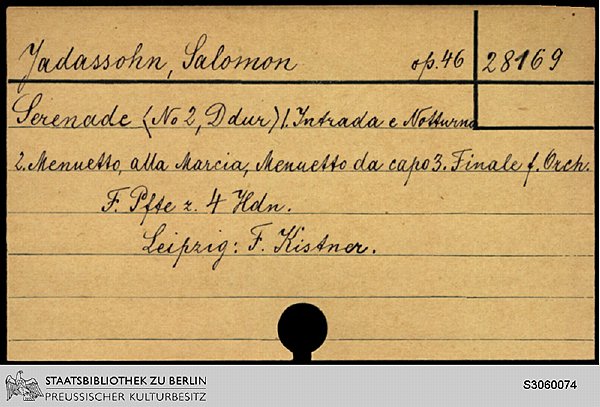 Jadassohn, Salomon op. 46 28169
Serenade (No 2, D dur) 1. Intrada e Notturno
2. Menuetto, alla Marcia, Menuetto da capo 3. Finale f. Orch.
F. Pfte z. 4 Hdn.
Leipzig: F. Kistner.
STAATSBIBLIOTHEK ZU BERLIN
PREUSSISCHER KULTURBESITZ
S3060074